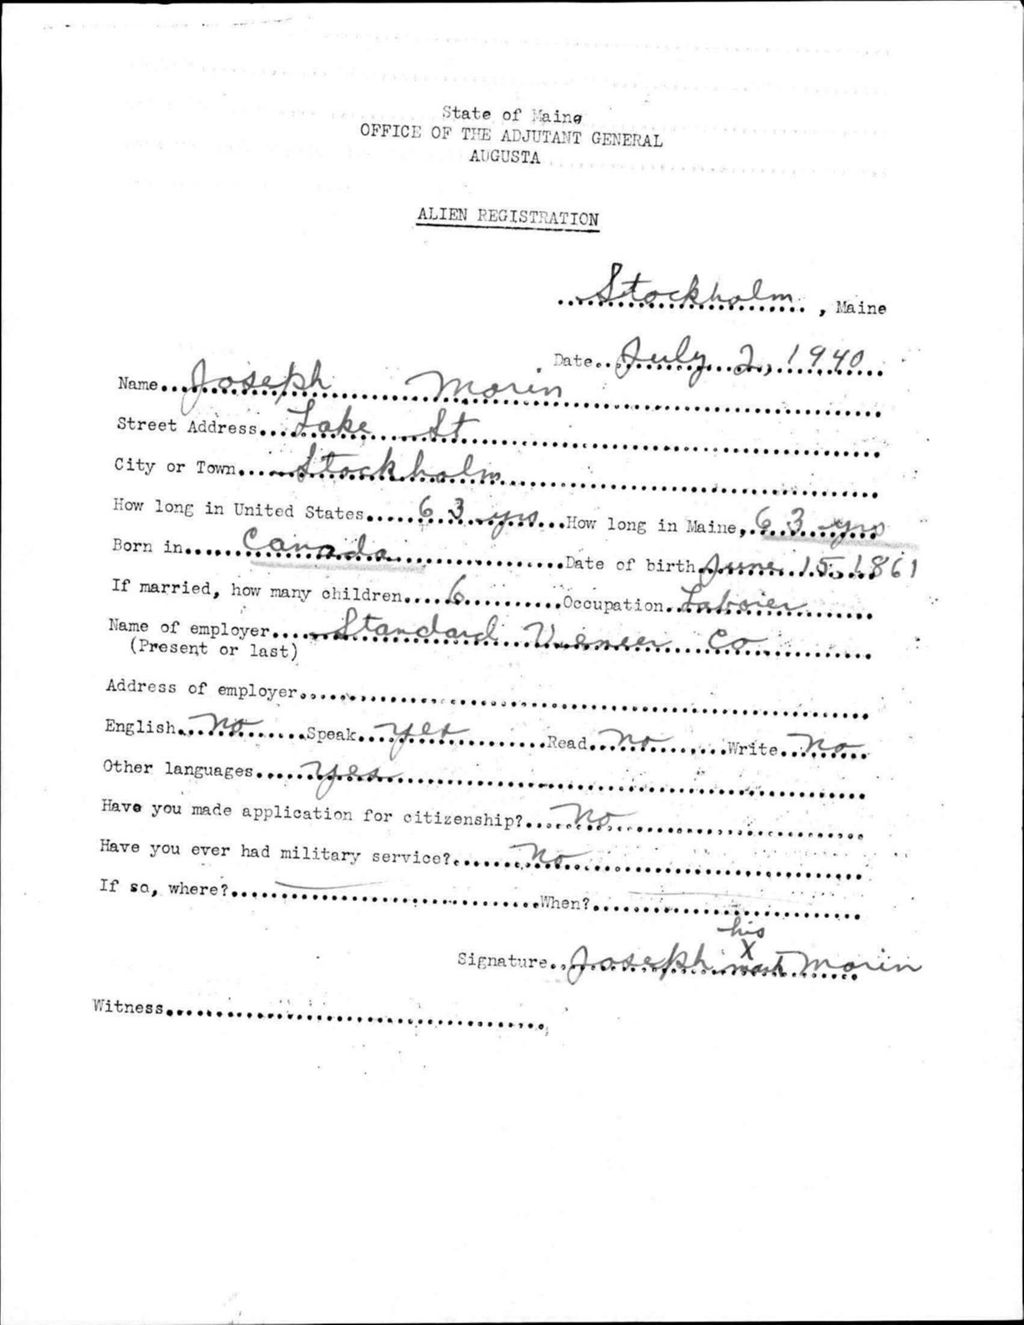 State of Maine
OFFICE OF THE ADJUTANT GENERAL
AUGUSTA
ALIEN REGISTRATION
Stockholm, Maine
Date July 2, 1940
Name Joseph Morin
Street Address Lake St
City or Town Stockholm
How long in United States 63 yrs How long in Maine, 63 yrs
Born in Canada Date of birth June 15, 1861
If married, how many children 6 Occupation Laborer
Name of employer Standard Veneer Co
(Present or last)
Address of employer
English No Speak yes Read No Write No
Other languages yes
Have you made application for citizenship? No
Have you ever had military service? No
If so, where? When?
his
Signature Joseph X mark Morin
Witness